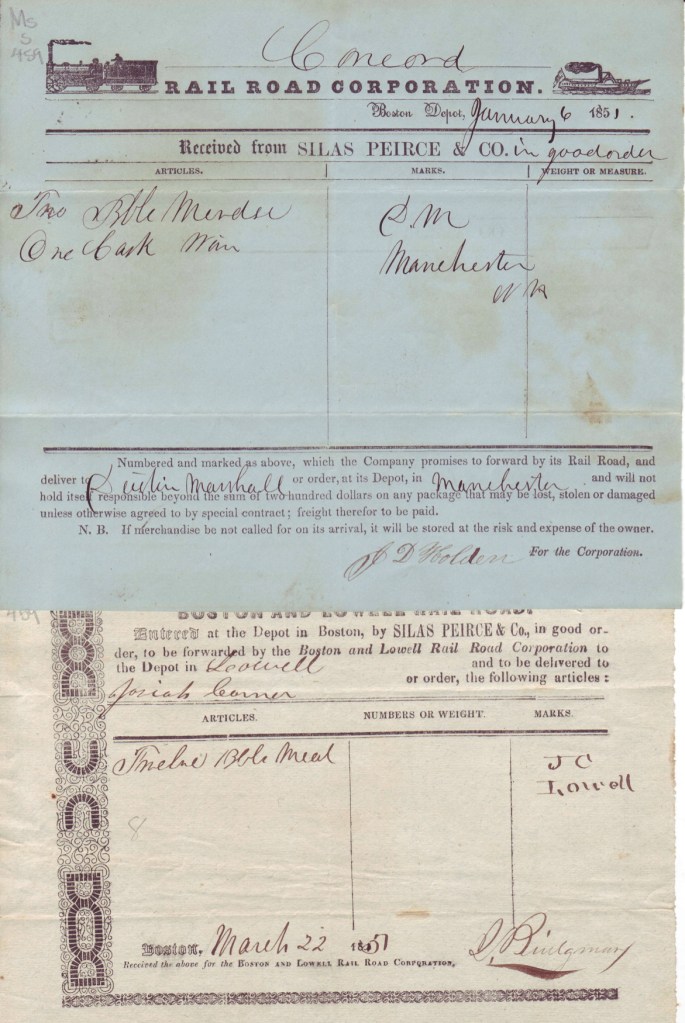 Ms
S
459
Concord
RAIL ROAD CORPORATION.
Boston Depot, January 6 1851.
Received from SILAS PEIRCE & CO. in good order
ARTICLES. MARKS. WEIGHT OR MEASURE.
Two Bbls Merdse D. M
One Cask Manchester
N H
Numbered and marked as above, which the Company promises to forward by its Rail Road, and
deliver to Dustin Marshall or order, at its Depot, in Manchester and will not
hold itself responsible beyond the sum of two hundred dollars on any package that may be lost, stolen or damaged
unless otherwise agreed to by special contract; freight therefor to be paid.
N. B. If merchandise be not called for on its arrival, it will be stored at the risk and expense of the owner.
J D Holden For the Corporation.
459
BOSTON AND LOWELL RAIL ROAD.
Entered at the Depot in Boston, by SILAS PEIRCE & Co., in good or-
der, to be forwarded by the Boston and Lowell Rail Road Corporation to
the Depot in Lowell and to be delivered to
Josiah or order, the following articles:
ARTICLES. NUMBERS OR WEIGHT. MARKS.
Twelve Bbls Meal J C
Lowell
8
Boston, March 22 1851
Received the above for the BOSTON AND LOWELL RAIL ROAD CORPORATION,